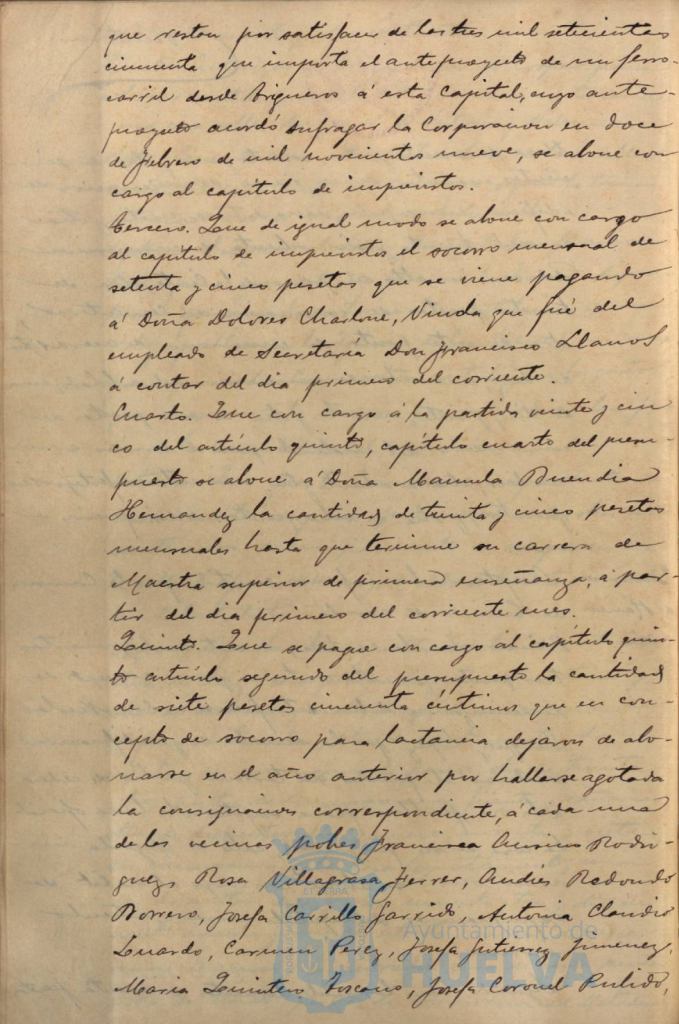 que restan por satisfacer de las tres mil setecientas
cincuenta que importa el anteproyecto de un ferro-
carril desde Trigueros á esta Capital, cuyo ante-
proyecto acordó sufragar la Corporacion en doce
de febrero de mil novecientos nueve, se abone con
cargo al capítulo de imprevistos.
Tercero. Que de igual modo se abone con cargo
al capítulo de imprevistos el socorro mensual de
setenta y cinco pesetas que se viene pagando
á Doña Dolores Charlone, Viuda que fué del
empleado de Secretaría Don Francisco Llanos
á contar del dia primero del corriente.
Cuarto. Que con cargo á la partida veinte y cin
co del artículo quinto, capítulo cuarto del presu-
puesto se abone á Doña Manuela Buendia
Hernandez la cantidad de treinta y cinco pesetas
mensuales hasta que termine su carrera de
Maestra superior de primera enseñanza, á par-
tir del dia primero del corriente mes.
Quinto. Que se pague con cargo al capítulo quin-
to artículo segundo del presupuesto la cantidad
de siete pesetas cincuenta céntimos que en con-
cepto de socorro para lactancia dejaron de abo-
narse en el año anterior por hallarse agotada
la consignacion correspondiente, á cada una
de las vecinas pobres Francisca Rodri-
guez, Rosa Villagrasa Ferrer, Andrés Redondo
Borrero, Josefa Carrillo Garrido, Antonia Claudio
Carmen Perez, Josefa Gutierrez Jimenez,
Maria Quintero Toscano, Josefa Coronel Pulido,
Ayuntamiento de
HUELVA